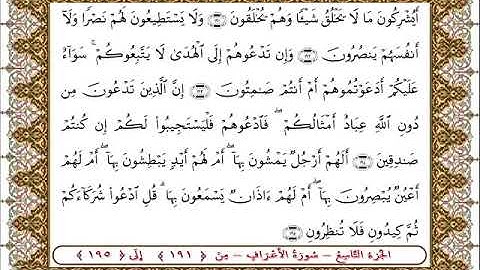 أَيُشْرِكُونَ مَا لَا يَخْلُقُ شَيْـًٔا وَهُمْ يُخْلَقُونَ ﴿١٩١﴾ وَلَا يَسْتَطِيعُونَ لَهُمْ نَصْرًا وَلَآ
أَنفُسَهُمْ يَنصُرُونَ ﴿١٩٢﴾ وَإِن تَدْعُوهُمْ إِلَى ٱلْهُدَىٰ لَا يَتَّبِعُوكُمْ ۚ سَوَآءٌ
عَلَيْكُمْ أَدَعَوْتُمُوهُمْ أَمْ أَنتُمْ صَـٰمِتُونَ ﴿١٩٣﴾ إِنَّ ٱلَّذِينَ تَدْعُونَ مِن
دُونِ ٱللَّهِ عِبَادٌ أَمْثَالُكُمْ ۖ فَٱدْعُوهُمْ فَلْيَسْتَجِيبُوا۟ لَكُمْ إِن كُنتُمْ
صَـٰدِقِينَ ﴿١٩٤﴾ أَلَهُمْ أَرْجُلٌ يَمْشُونَ بِهَآ ۖ أَمْ لَهُمْ أَيْدٍ يَبْطِشُونَ بِهَآ ۖ أَمْ لَهُمْ
أَعْيُنٌ يُبْصِرُونَ بِهَآ ۖ أَمْ لَهُمْ ءَاذَانٌ يَسْمَعُونَ بِهَا ۗ قُلِ ٱدْعُوا۟ شُرَكَآءَكُمْ
ثُمَّ كِيدُونِ فَلَا تُنظِرُونِ ﴿١٩٥﴾
الجزء التاسع - سورة الأعراف - من ﴿ ١٩١ ﴾ إلى ﴿ ١٩٥ ﴾